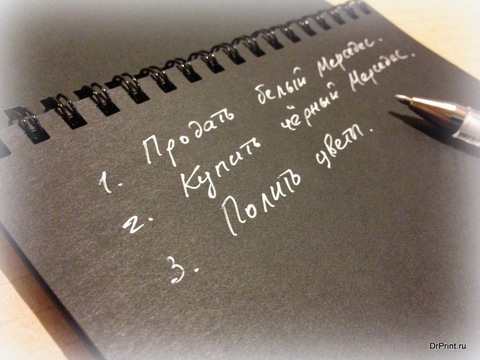 1. Продать белый Мерседес.
2. Купить чёрный Мерседес.
3. Полить цветы.
DrPrint.ru